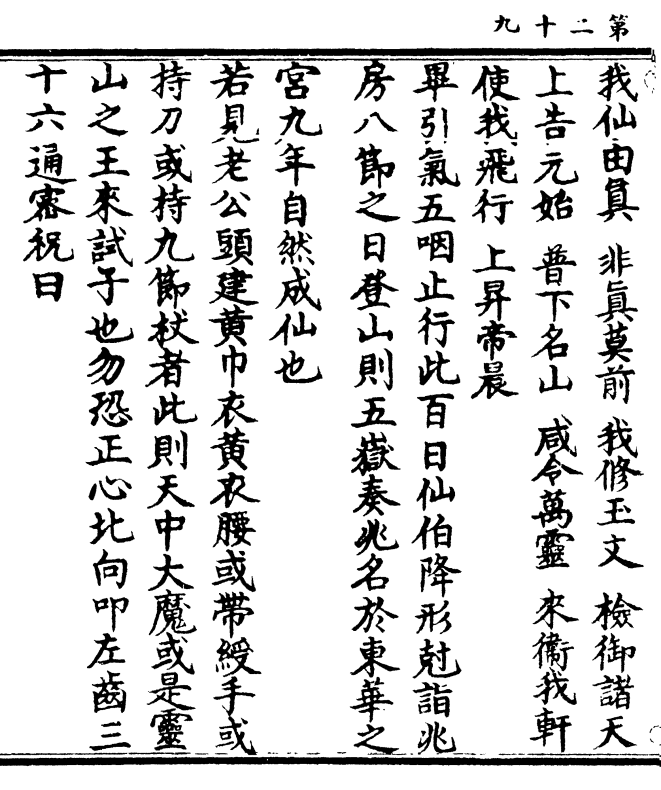 第二十九
我仙由眞 非眞莫前 我修玉文 檢御諸天
上告元始 普下名山 咸令萬靈 來衞我軒
使我飛行 上昇帝晨
畢引氣五咽止行此百日仙伯降形尅詣兆
房八節之日登山則五嶽奏兆名於東華之
宮九年自然成仙也
若見老公頭建黄巾衣黄衣腰或帶綬手或
持刀或持九節杖者此則天中大魔或是靈
山之王來試子也勿恐正心北向叩左齒三
十六通密祝曰